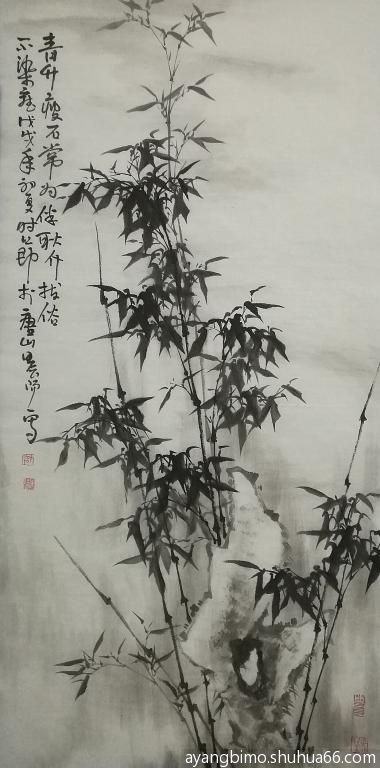 青竹瘦石常为伴耿介拔俗
不染尘戊戌年初夏时节于唐山写
ayangbimo.shuhua66.com